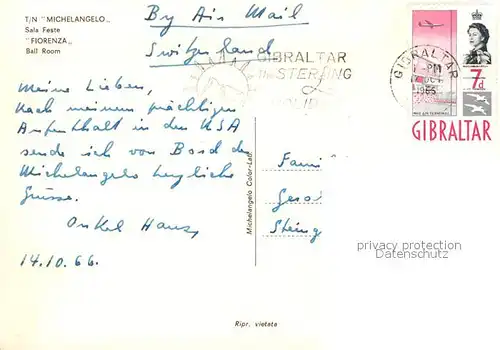 T/N "MICHELANGELO„
Sala Feste
"FIORENZA„
Ball Room
By Air Mail
Switzerland
GIBRALTAR
the STERLING
GIBRALTAR
PM
7d
GIBRALTAR
Meine Lieben,
Nach meinem prächtigen
Aufenthalt in den USA
sende ich von Bord der
Michelangelo herzliche
Grüsse.
Onkel Hans,
14.10.66.
Michelangelo Color-Laff
Fami
Gerol
Steing
privacy protection
Ansichtskarten-Center
Ripr. vietata